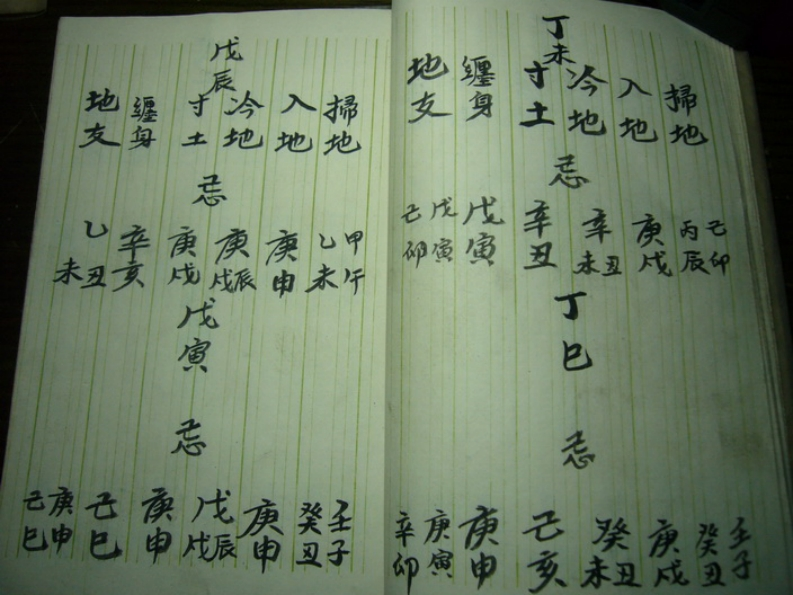 丁未
掃地
入地
冷地
寸土
纏身
地支
忌
己卯
丙辰
庚戌
辛丑未
辛丑
戊寅
戊寅
己卯
丁巳
忌
壬子
癸丑
庚戌
癸丑未
己亥
庚申
庚寅
辛卯
戊辰
掃地
入地
冷地
寸土
纏身
地支
忌
甲午
乙未
庚申
庚辰戌
庚戌
辛亥
乙丑未
戊寅
忌
壬子
癸丑
庚申
戊辰戌
庚申
己巳
庚申
己巳